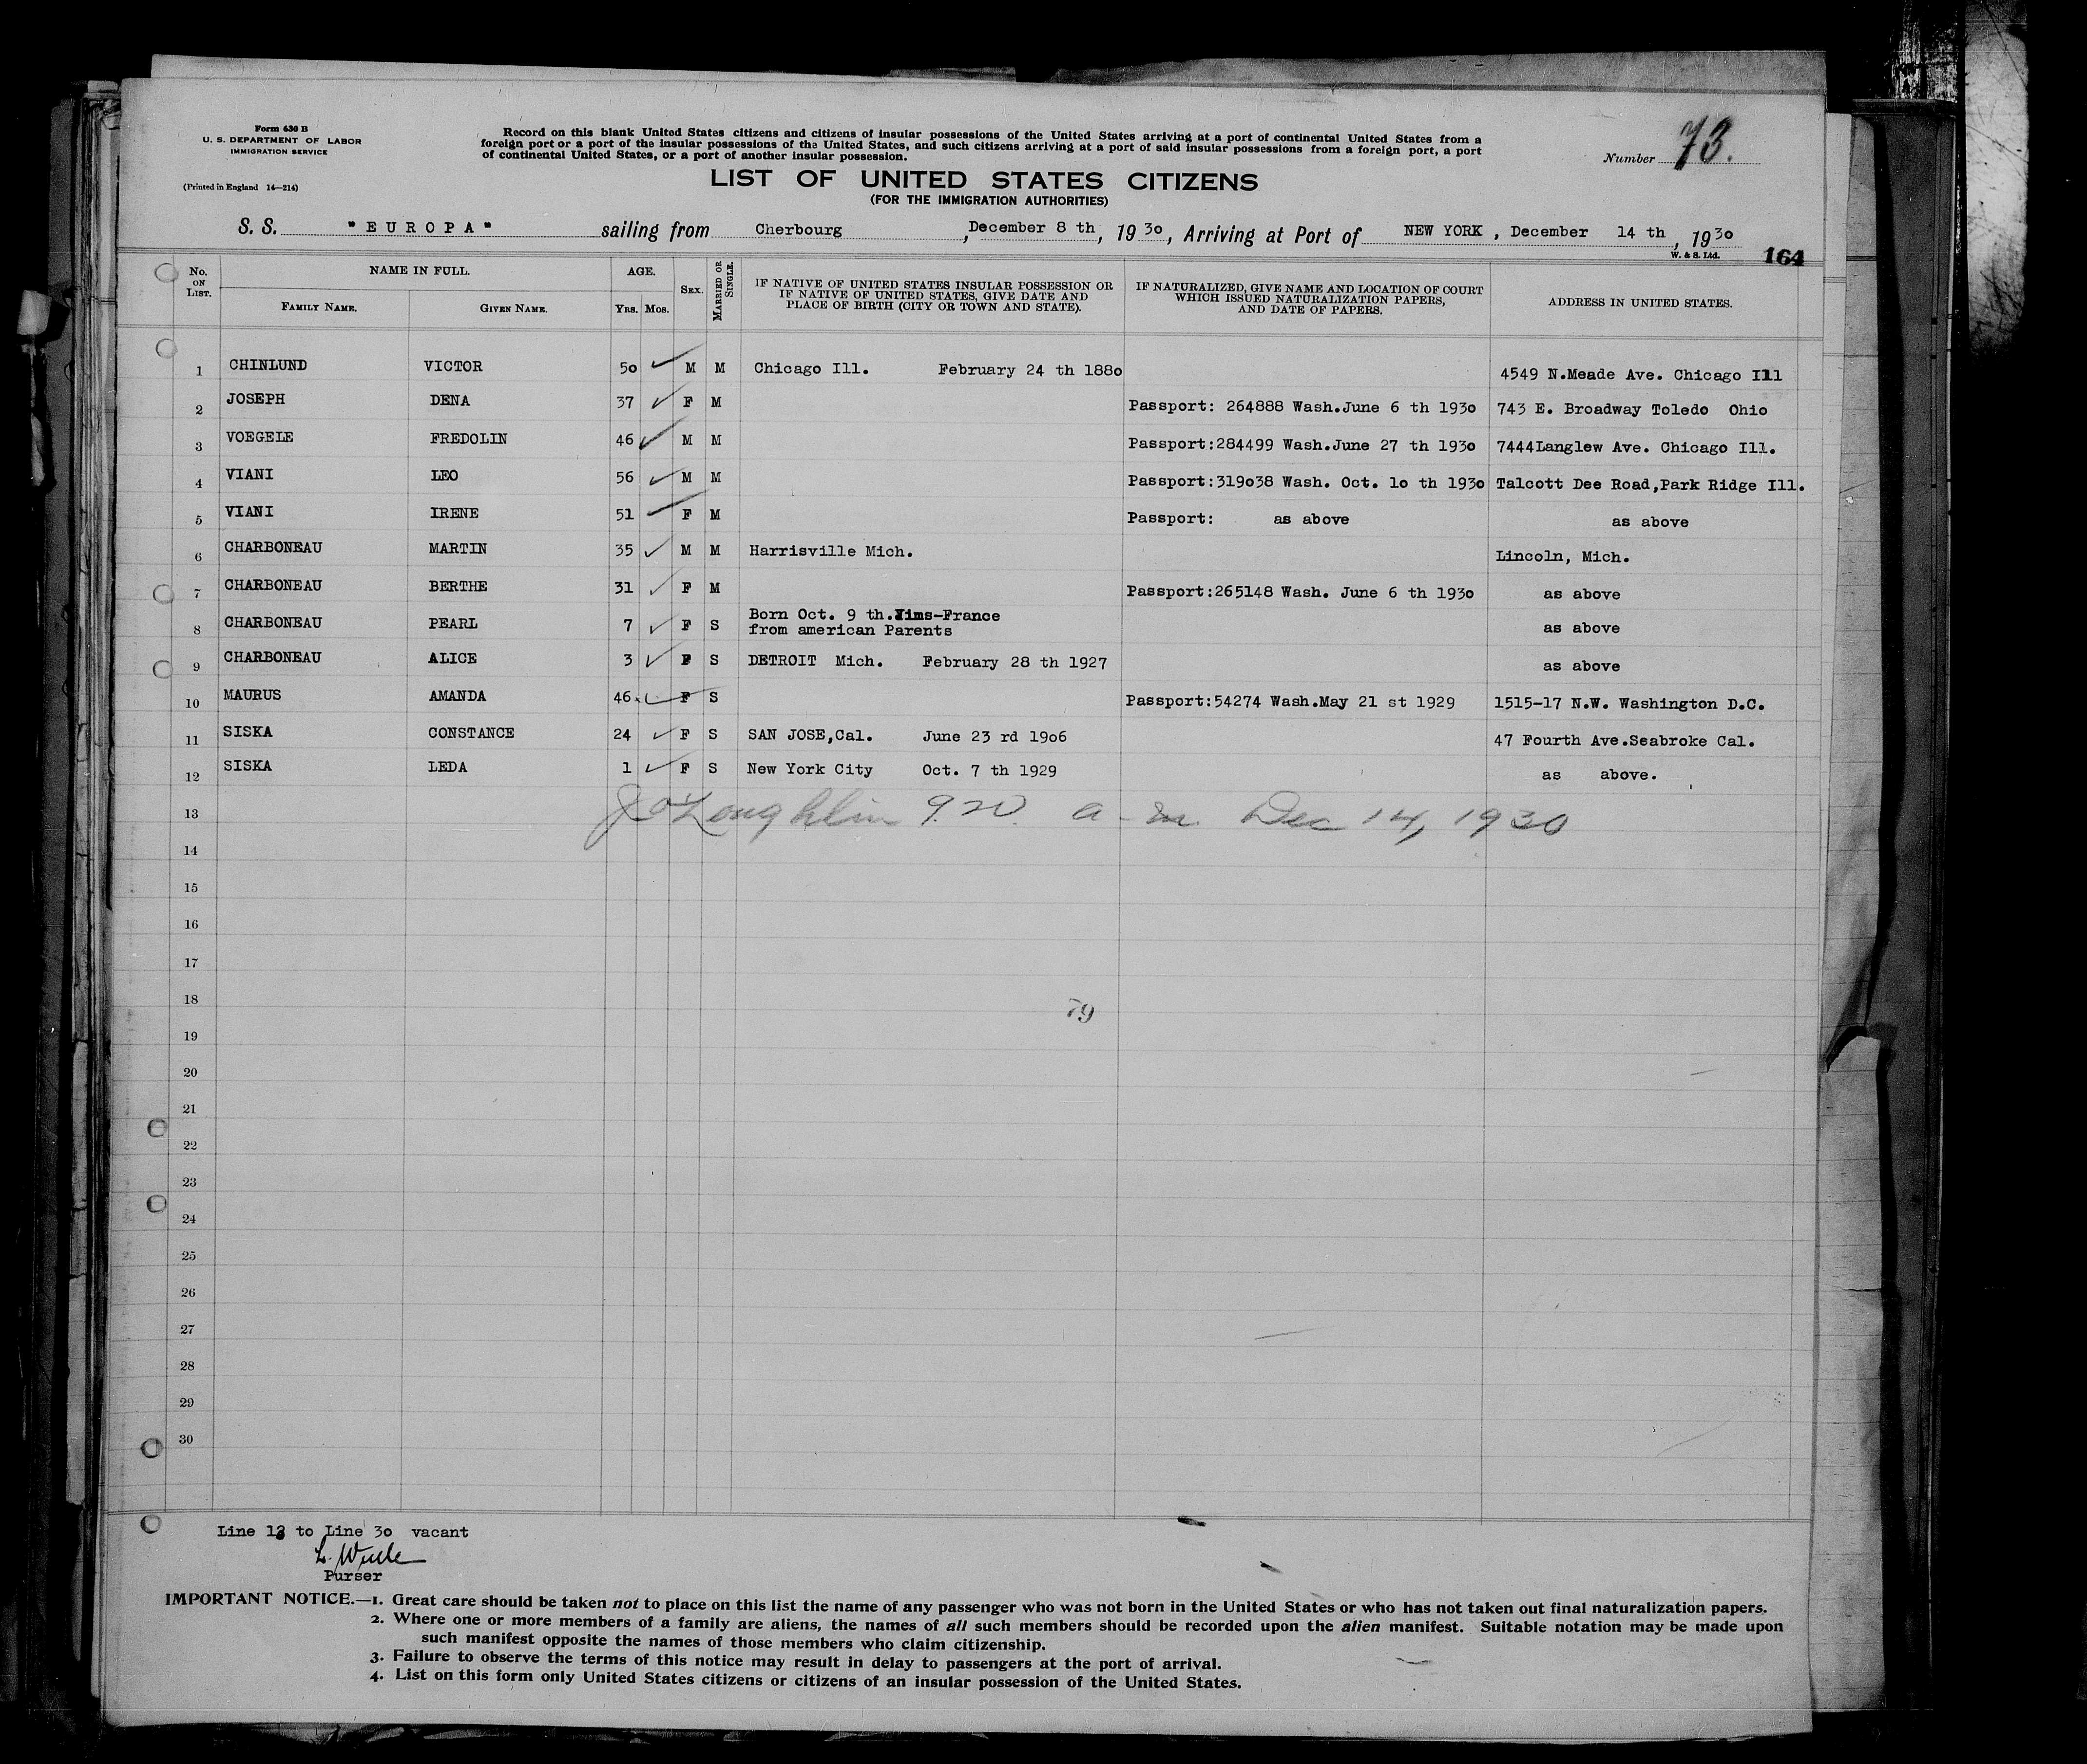 Form 630 B
U. S. DEPARTMENT OF LABOR
IMMIGRATION SERVICE
(Printed in England 14—214)
Record on this blank United States citizens and citizens of insular possessions of the United States arriving at a port of continental United States from a
foreign port or a port of the insular possessions of the United States, and such citizens arriving at a port of said insular possessions from a foreign port, a port
of continental United States, or a port of another insular possession.
Number 73.
LIST OF UNITED STATES CITIZENS
(FOR THE IMMIGRATION AUTHORITIES)
S. S. "EUROPA" sailing from Cherbourg, December 8 th, 1930, Arriving at Port of NEW YORK, December 14 th, 1930
W. & S. Ltd.
164
No. ON LIST. NAME IN FULL. FAMILY NAME. GIVEN NAME. AGE. YRS. MOS. SEX. MARRIED OR SINGLE. IF NATIVE OF UNITED STATES INSULAR POSSESSION OR IF NATIVE OF UNITED STATES, GIVE DATE AND PLACE OF BIRTH (CITY OR TOWN AND STATE). IF NATURALIZED, GIVE NAME AND LOCATION OF COURT WHICH ISSUED NATURALIZATION PAPERS, AND DATE OF PAPERS. ADDRESS IN UNITED STATES.
1 CHINLUND VICTOR 50 M M Chicago Ill. February 24 th 1880 4549 N.Meade Ave. Chicago Ill
2 JOSEPH DENA 37 F M Passport: 264888 Wash.June 6 th 1930 743 E. Broadway Toledo Ohio
3 VOEGELE FREDOLIN 46 M M Passport:284499 Wash.June 27 th 1930 7444Langlew Ave. Chicago Ill.
4 VIANI LEO 56 M M Passport:319038 Wash. Oct. 10 th 1930 Talcott Dee Road,Park Ridge Ill.
5 VIANI IRENE 51 F M Passport: as above as above
6 CHARBONEAU MARTIN 35 M M Harrisville Mich. Lincoln, Mich.
7 CHARBONEAU BERTHE 31 F M Passport:265148 Wash. June 6 th 1930 as above
8 CHARBONEAU PEARL 7 F S Born Oct. 9 th. -France from american Parents as above
9 CHARBONEAU ALICE 3 F S DETROIT Mich. February 28 th 1927 as above
10 MAURUS AMANDA 46 F S Passport:54274 Wash.May 21 st 1929 1515-17 N.W. Washington D.C.
11 SISKA CONSTANCE 24 F S SAN JOSE,Cal. June 23 rd 1906 47 Fourth Ave.Seabroke Cal.
12 SISKA LEDA 1 F S New York City Oct. 7 th 1929 as above.
13 J O'Loughlin 9.20 a.m. Dec 14, 1930
14
15
16
17
18
79
19
20
21
22
23
24
25
26
27
28
29
30
Line 13 to Line 30 vacant
Purser
IMPORTANT NOTICE.—1. Great care should be taken not to place on this list the name of any passenger who was not born in the United States or who has not taken out final naturalization papers.
2. Where one or more members of a family are aliens, the names of all such members should be recorded upon the alien manifest. Suitable notation may be made upon
such manifest opposite the names of those members who claim citizenship.
3. Failure to observe the terms of this notice may result in delay to passengers at the port of arrival.
4. List on this form only United States citizens or citizens of an insular possession of the United States.